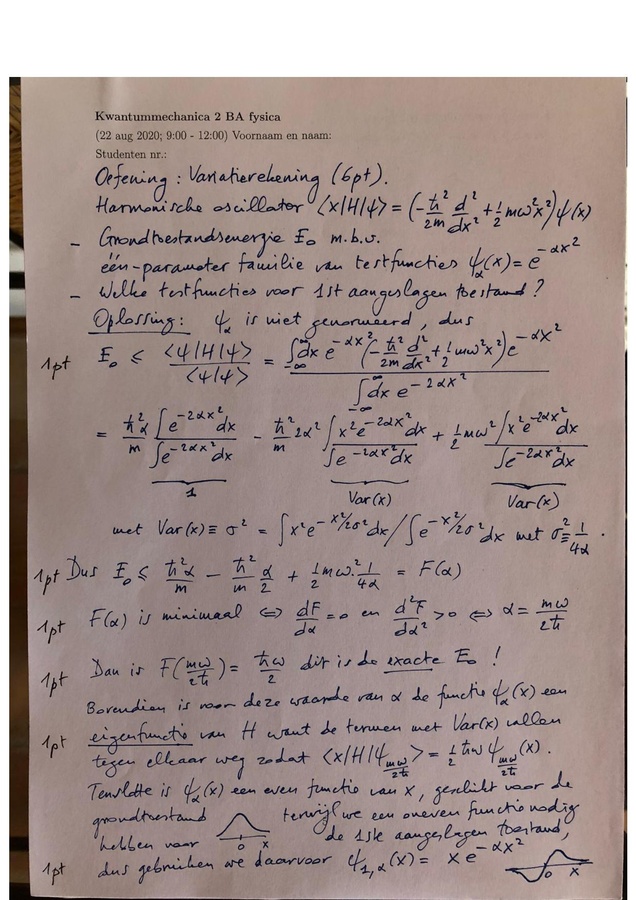 Kwantummechanica 2 BA fysica
(22 aug 2020; 9:00 - 12:00) Voornaam en naam:
Studenten nr.:
Oefening: Variatierekening (6pt).
Harmonische oscillator ⟨x|H|ψ⟩ = (-ħ²/2m d²/dx² + ½ mω²x²) ψ(x)
- Grondtoestandsenergie E₀ m.b.v.
één-parameter familie van testfuncties ψ_α(x) = e^{-αx²}
- Welke testfuncties voor 1st aangeslagen toestand?
Oplossing: ψ_α is niet genormeerd, dus
1pt E₀ ≤ ⟨ψ|H|ψ⟩/⟨ψ|ψ⟩ = ∫_{-∞}^{∞} dx e^{-αx²} (-ħ²/2m d²/dx² + ½ mω²x²) e^{-αx²} / ∫_{-∞}^{∞} dx e^{-2αx²}
= ħ²α/m ∫e^{-2αx²}dx / ∫e^{-2αx²}dx - ħ²/m 2α² ∫x²e^{-2αx²}dx / ∫e^{-2αx²}dx + ½ mω² ∫x²e^{-2αx²}dx / ∫e^{-2αx²}dx
1 Var(x) Var(x)
met Var(x) ≡ σ² = ∫x²e^{-x²/2σ²}dx / ∫e^{-x²/2σ²}dx met σ² ≡ 1/4α .
1pt Dus E₀ ≤ ħ²α/m - ħ²/m α/2 + ½ mω² · 1/4α = F(α)
1pt F(α) is minimaal ⇔ dF/dα = 0 en d²F/dα² > 0 ⇔ α = mω/2ħ
1pt Dan is F(mω/2ħ) = ħω/2 dit is de exacte E₀ !
Bovendien is voor deze waarde van α de functie ψ_α(x) een
1pt eigenfunctie van H want de termen met Var(x) vallen
tegen elkaar weg zodat ⟨x|H|ψ_{mω/2ħ}⟩ = ½ ħω ψ_{mω/2ħ}(x).
Tenslotte is ψ_α(x) een even functie van x, geschikt voor de
grondtoestand 0 x terwijl we een oneven functie nodig
hebben voor de 1ste aangeslagen toestand,
1pt dus gebruiken we daarvoor ψ_{1,α}(x) = x e^{-αx²} 0 x